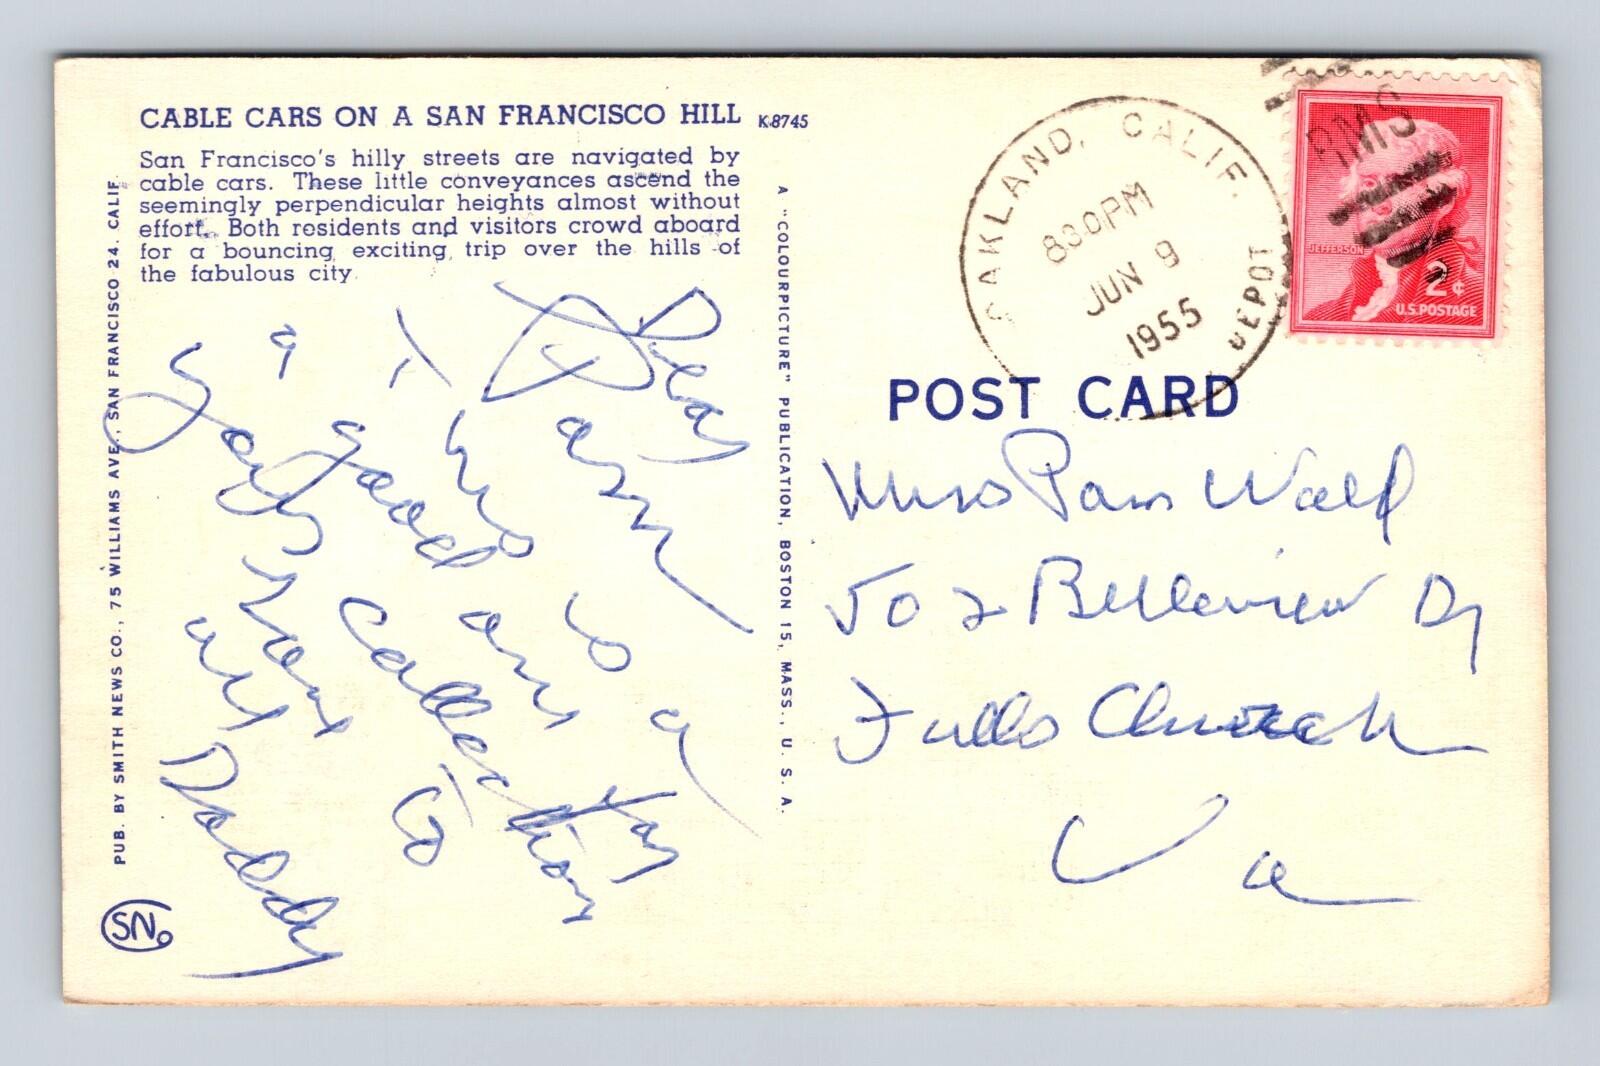 CABLE CARS ON A SAN FRANCISCO HILL K.8745
San Francisco's hilly streets are navigated by
cable cars. These little conveyances ascend the
seemingly perpendicular heights almost without
effort. Both residents and visitors crowd aboard
for a bouncing, exciting, trip over the hills of
the fabulous city.
PUB. BY SMITH NEWS CO., 75 WILLIAMS AVE., SAN FRANCISCO 24, CALIF.
A "COLOURPICTURE" PUBLICATION, BOSTON 15, MASS., U. S. A.
SNCo
Dear
Pam
This is a
good one for
a
your collection
Love to
Daddy
OAKLAND, CALIF.
830PM
JUN 9
1955
DEPOT
RMS
JEFFERSON
2¢
U.S. POSTAGE
POST CARD
Miss Pam Wald
502 Belleview Dr
Falls Church
Va